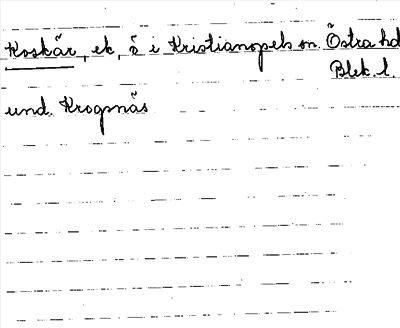 Koskär, ek, ö i Kristianopels sn. Östra hd
Blek. l.
und. Krogsnäs